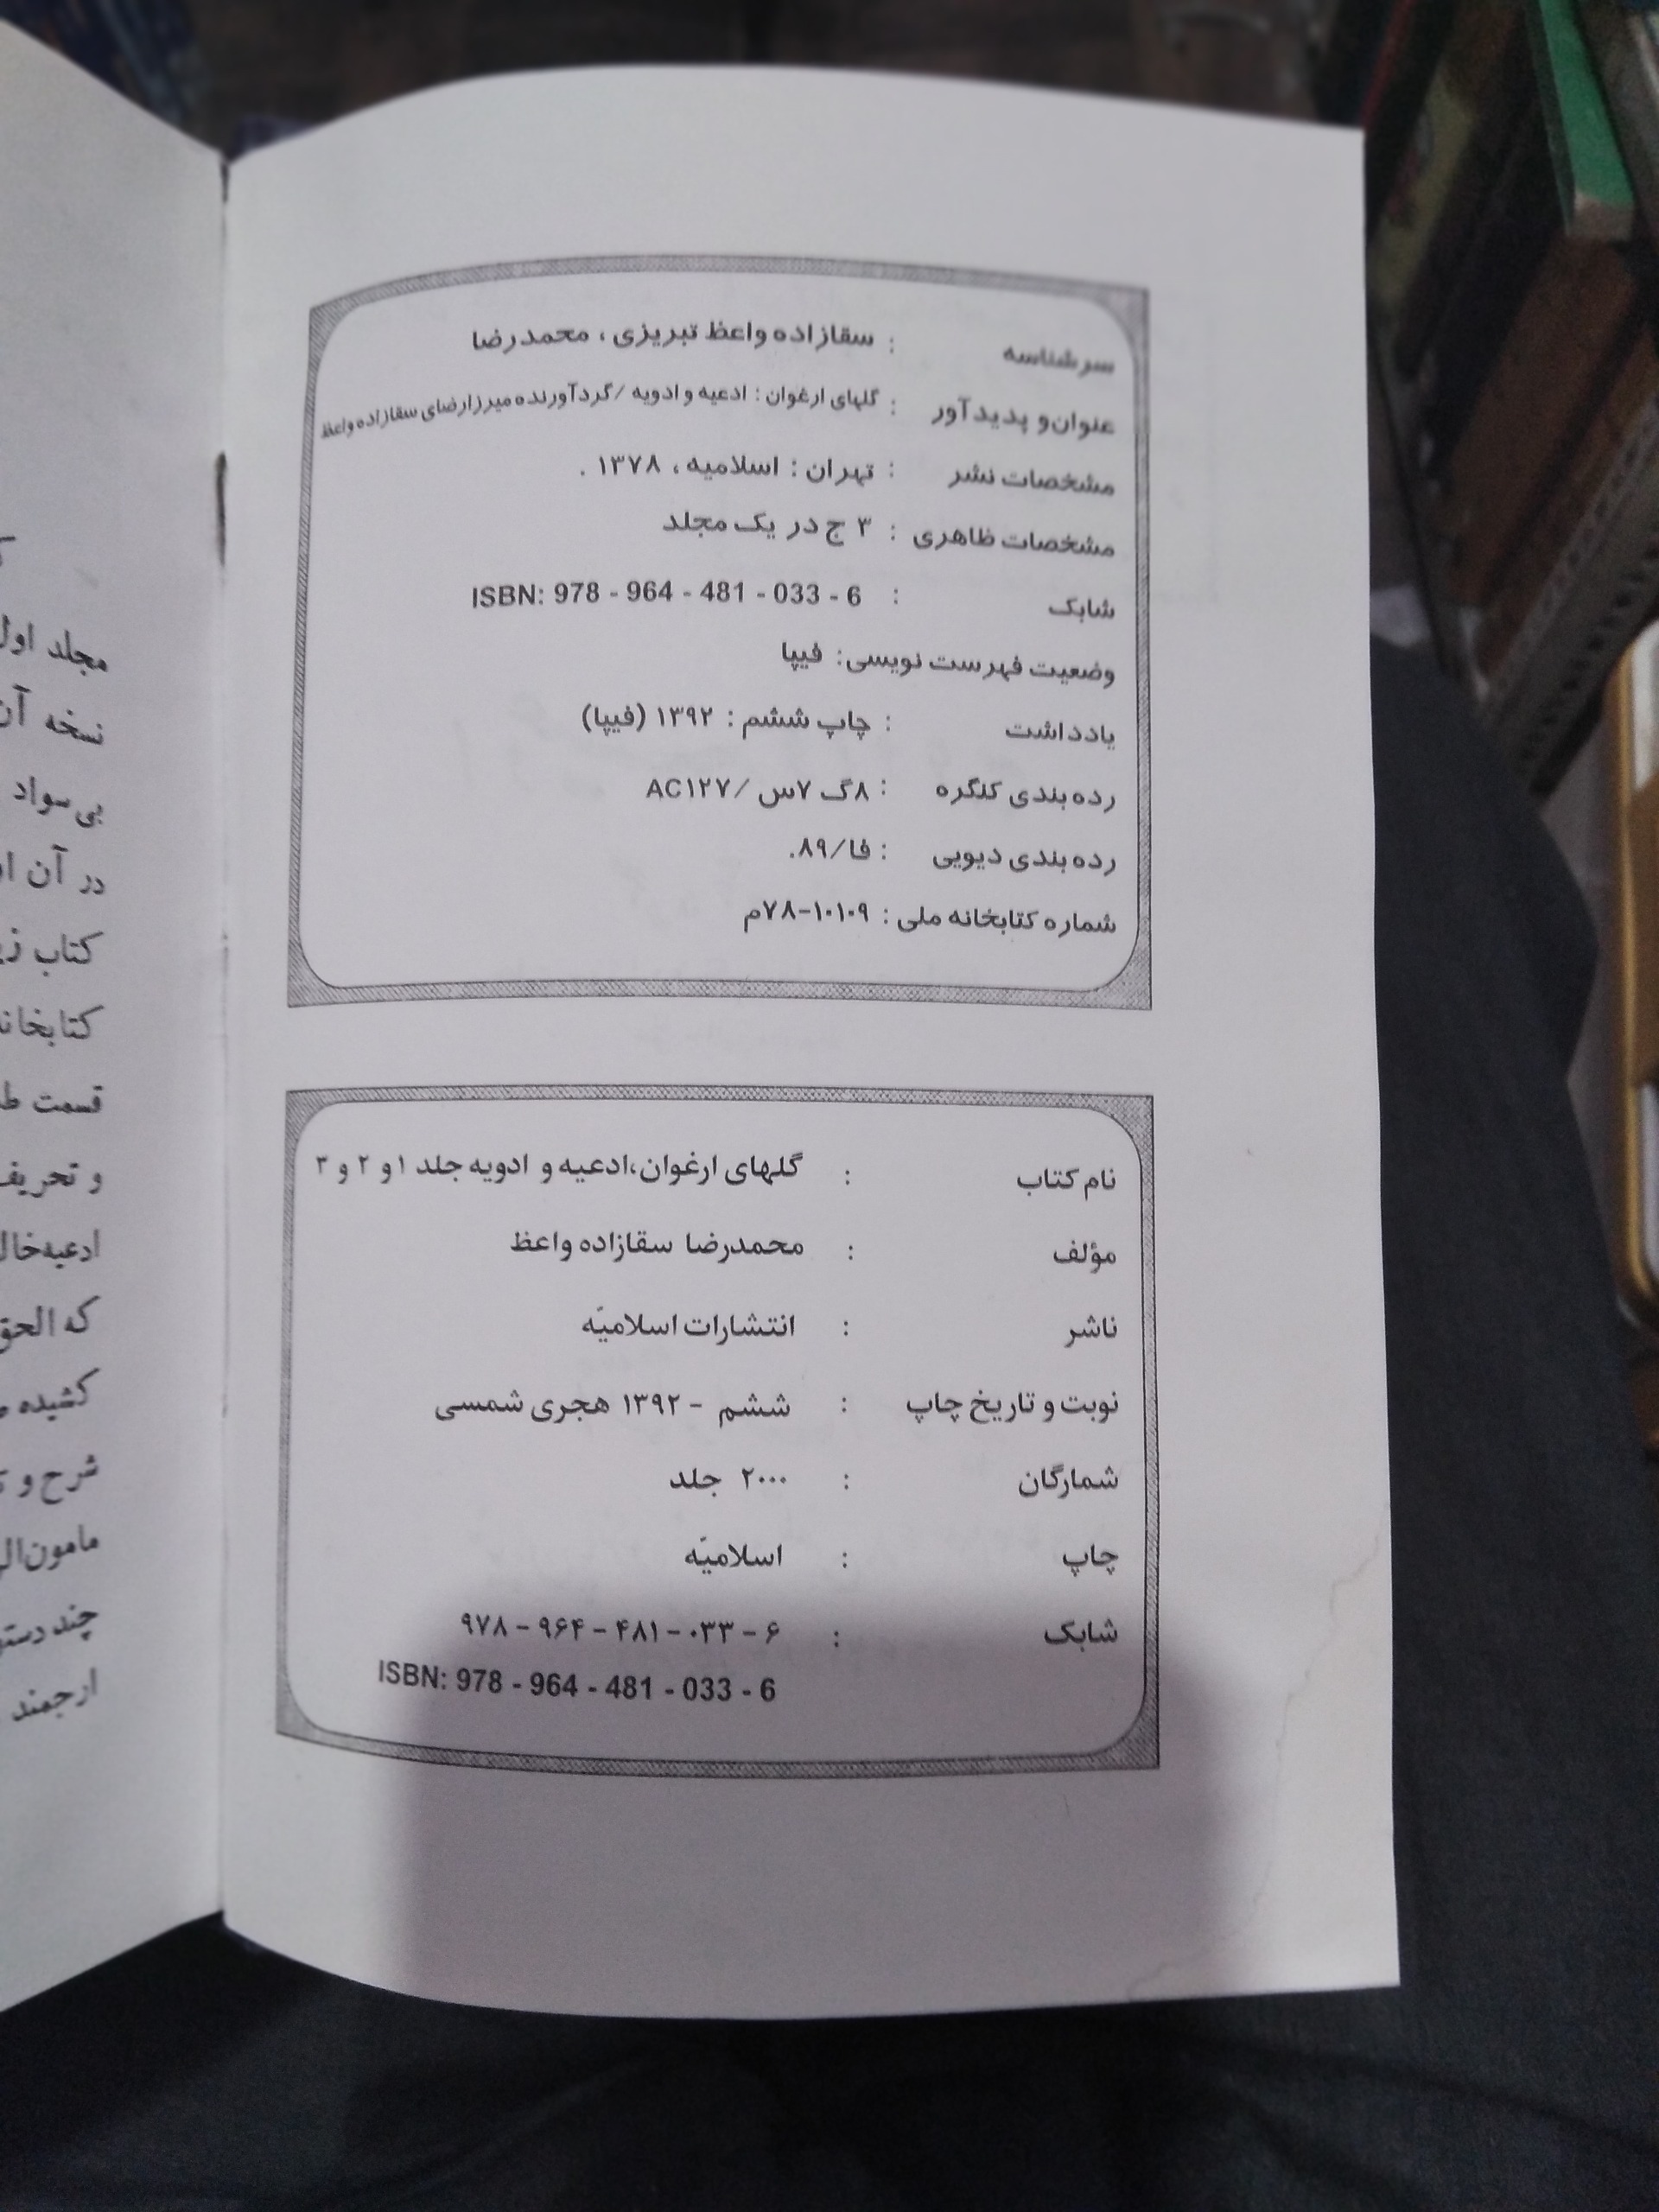 سرشناسه : سقازاده واعظ تبریزی ، محمدرضا
عنوان و پدیدآور : گلهای ارغوان : ادعیه و ادویه / گردآورنده میرزارضای سقازاده واعظ
مشخصات نشر : تهران : اسلامیه ، ۱۳۷۸ .
مشخصات ظاهری : ۳ ج در یک مجلد
شابک : ISBN: 978 - 964 - 481 - 033 - 6
وضعیت فهرست نویسی: فیپا
یادداشت : چاپ ششم : ۱۳۹۲ (فیپا)
رده بندی کنگره : ۸گ ۷س /AC۱۲۷
رده بندی دیویی : ۸۹/فا.
شماره کتابخانه ملی : ۱۰۱۰۹-۷۸م
نام کتاب : گلهای ارغوان،ادعیه و ادویه جلد ۱ و ۲ و ۳
مؤلف : محمدرضا سقازاده واعظ
ناشر : انتشارات اسلامیّه
نوبت و تاریخ چاپ : ششم - ۱۳۹۲ هجری شمسی
شمارگان : ۲۰۰۰ جلد
چاپ : اسلامیّه
شابک : ۶ - ۰۳۳ - ۴۸۱ - ۹۶۴ - ۹۷۸
ISBN: 978 - 964 - 481 - 033 - 6
مجلد اول
نسخه آن
بی‌سواد
در آن
کتاب
کتابخانه
قسمت
و تحریف
که الحق
کشیده
شرح و
چند
ارجمند